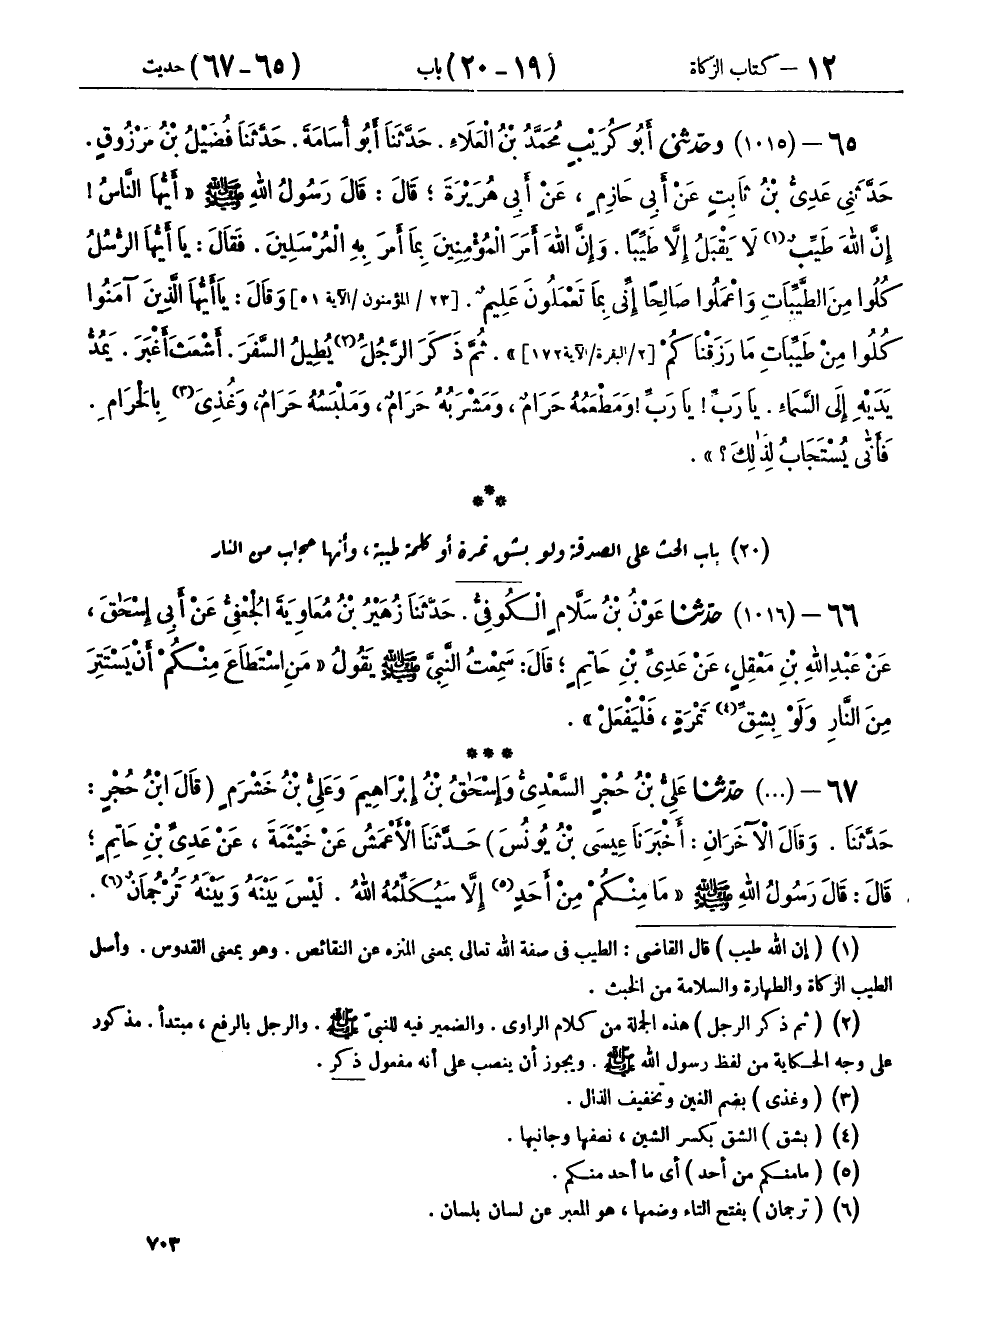 ١٢ – كتاب الزكاة (١٩-٢٠) باب (٦٥-٦٧) حديث
٦٥ – (١٠١٥) وحَدَّثَنِي أَبُو كُرَيْبٍ مُحَمَّدُ بْنُ الْعَلَاءِ. حَدَّثَنَا أَبُو أُسَامَةَ. حَدَّثَنَا فُضَيْلُ بْنُ مَرْزُوقٍ.
حَدَّثَنِي عَدِيُّ بْنُ ثَابِتٍ عَنْ أَبِي حَازِمٍ، عَنْ أَبِي هُرَيْرَةَ؛ قَالَ: قَالَ رَسُولُ اللهِ ﷺ «أَيُّهَا النَّاسُ!
إِنَّ اللهَ طَيِّبٌ(١) لَا يَقْبَلُ إِلَّا طَيِّبًا. وَإِنَّ اللهَ أَمَرَ الْمُؤْمِنِينَ بِمَا أَمَرَ بِهِ الْمُرْسَلِينَ. فَقَالَ: يَا أَيُّهَا الرُّسُلُ
كُلُوا مِنَ الطَّيِّبَاتِ وَاعْمَلُوا صَالِحًا إِنِّي بِمَا تَعْمَلُونَ عَلِيمٌ. [٢٣ / المؤمنون / الآية ٥١] وَقَالَ: يَا أَيُّهَا الَّذِينَ آمَنُوا
كُلُوا مِنْ طَيِّبَاتِ مَا رَزَقْنَاكُمْ [٢/البقرة/الآية ١٧٢]». ثُمَّ ذَكَرَ الرَّجُلُ(٢) يُطِيلُ السَّفَرَ. أَشْعَثَ أَغْبَرَ. يَمُدُّ
يَدَيْهِ إِلَى السَّمَاءِ. يَا رَبِّ! يَا رَبِّ! وَمَطْعَمُهُ حَرَامٌ، وَمَشْرَبُهُ حَرَامٌ، وَمَلْبَسُهُ حَرَامٌ، وَغُذِيَ(٣) بِالْحَرَامِ.
فَأَنَّى يُسْتَجَابُ لِذَٰلِكَ؟».
***
(٢٠) باب الحث على الصدقة ولو بشق تمرة أو كلمة طيبة، وأنها حجاب من النار
٦٦ – (١٠١٦) حَدَّثَنَا عَوْنُ بْنُ سَلَّامٍ الْكُوفِيُّ. حَدَّثَنَا زُهَيْرُ بْنُ مُعَاوِيَةَ الْجُعْفِيُّ عَنْ أَبِي إِسْحَٰقَ،
عَنْ عَبْدِ اللهِ بْنِ مَعْقِلٍ، عَنْ عَدِيِّ بْنِ حَاتِمٍ؛ قَالَ: سَمِعْتُ النَّبِيَّ ﷺ يَقُولُ «مَنِ اسْتَطَاعَ مِنْكُمْ أَنْ يَسْتَتِرَ
مِنَ النَّارِ وَلَوْ بِشِقِّ(٤) تَمْرَةٍ، فَلْيَفْعَلْ».
***
٦٧ – (...) حَدَّثَنَا عَلِيُّ بْنُ حُجْرٍ السَّعْدِيُّ وَإِسْحَٰقُ بْنُ إِبْرَاهِيمَ وَعَلِيُّ بْنُ خَشْرَمٍ (قَالَ ابْنُ حُجْرٍ:
حَدَّثَنَا. وَقَالَ الْآخَرَانِ: أَخْبَرَنَا عِيسَى بْنُ يُونُسَ) حَدَّثَنَا الْأَعْمَشُ عَنْ خَيْثَمَةَ، عَنْ عَدِيِّ بْنِ حَاتِمٍ؛
قَالَ: قَالَ رَسُولُ اللهِ ﷺ «مَا مِنْكُمْ مِنْ أَحَدٍ(٥) إِلَّا سَيُكَلِّمُهُ اللهُ. لَيْسَ بَيْنَهُ وَبَيْنَهُ تُرْجُمَانٌ(٦).
(١) (إن الله طيب) قال القاضى: الطيب فى صفة الله تعالى بمعنى المنزه عن النقائص. وهو بمعنى القدوس. وأصل
الطيب الزكاة والطهارة والسلامة من الخبث.
(٢) (ثم ذكر الرجل) هذه الجملة من كلام الراوى. والضمير فيه للنبىّ ﷺ. والرجل بالرفع، مبتدأ. مذكور
على وجه الحكاية من لفظ رسول الله ﷺ. ويجوز أن ينصب على أنه مفعول ذكر.
(٣) (وغذى) بضم الغين وتخفيف الذال.
(٤) (بشق) الشق بكسر الشين، نصفها وجانبها.
(٥) (مامنكم من أحد) أى ما أحد منكم.
(٦) (ترجمان) بفتح التاء وضمها، هو المعبر عن لسان بلسان.
٧٠٣